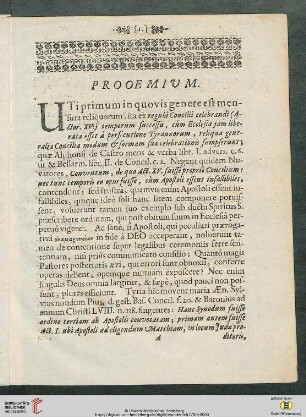 (1.)
PROOEMIUM.
UTi primum in quovis genere est men-
sura reliquorum: ita ex regulâ Concilii celebrandi (A-
ctor. XV.) temporum successu, cùm Ecclesia jam libe-
rata esset à persecutione Tyrannorum, reliqua gene-
ralia Concilia modum & formam suæ celebrationis sumpserunt;
quæ Alphonsi de Castro mens & verba libr. I. advers. c. 8.
ut & Bellarm. libr. II. de Concil. c. 2. Negant quidem No-
vatores, Conventum, de quo Act. XV. fuisse propriè Concilium;
nec tunc temporis eo opus fuisse, cùm Apostoli essent infallibiles,
contendunt; sed frustra, quamvis enim Apostoli essent in-
fallibiles,
possent, voluerunt tamen suo exemplo sub ductu Spiritus S.
præscribere ordinem, qui post obitum suum in Ecclesia per-
petuò vigeret. Ac sanè, si Apostoli, qui peculiari præroga-
tivâ in fide à DEO acceperant, noluerunt ta-
men de contentione super legalibus ceremoniis ferre sen-
tentiam, nisi priùs communicato consilio; Quantò magis
Pastores posteriores ævi, qui errori sunt obnoxii, conferre
operas debent, opemque mutuam exposcere? Nec enim
singulis Deus omnia largitur, & sæpè, quod pauci non pos-
sunt, plures efficiunt.
nondum Pius, d. gest. Basil. Concil. f. 20. & Baronius ad
annum Christi LVIII. n. 118. sugerentes: Hanc Synodum fuisse
ordine tertiam ab Apostolis convocatam; primam autem fuisse
Act. I. ubi Apostoli ad eligendum Matthiam, in locum Judæ pro-
A
ditoris,
UNIVERSITÄTS-
BIBLIOTHEK
HEIDELBERG